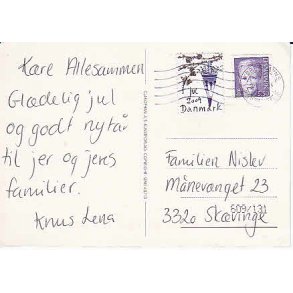 Kære Allesammen
Glædelig jul
og godt nytår
til jer og jeres
familier.
Knus Lena
JUL
2009
Danmark
Familien Nislev
Månevanget 23
3320 Skævinge
609/131